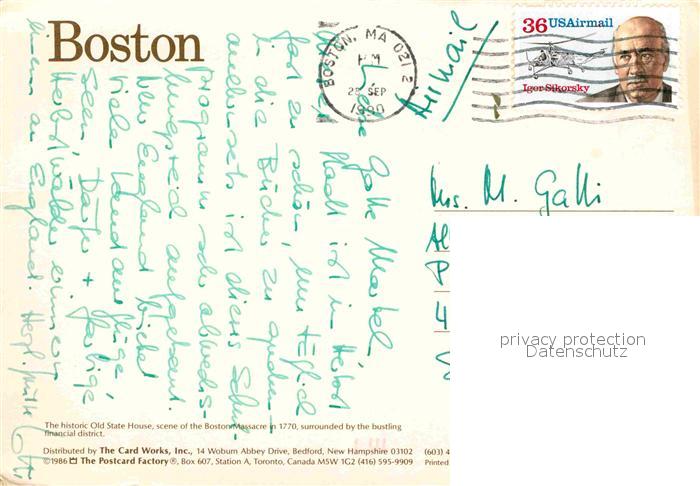 Boston
BOSTON, MA 021 2
PM
28 SEP
1990
36 USAirmail
Igor Sikorsky
Airmail
Mrs. M. Galli
Al
P
4
privacy protection
Datenschutz
Liebe Gotte Mabel
Stadt ist im Herbst
fast zu schön, um täglich
in die Bücher zu gucken
andrerseits ist dieses Schul-
programm sehr abwechs-
lungsreich aufgebaut.
New England bietet
viele Wanderausflüge
Seen, Dörfer + farbige
Herbstwälder erinnern
einen an England. Herzl. Grüsse
The historic Old State House, scene of the Boston Massacre in 1770, surrounded by the bustling
financial district.
Distributed by The Card Works, Inc., 14 Woburn Abbey Drive, Bedford, New Hampshire 03102 (603) 4
©1986 The Postcard Factory®, Box 607, Station A, Toronto, Canada M5W 1G2 (416) 595-9909 Printed